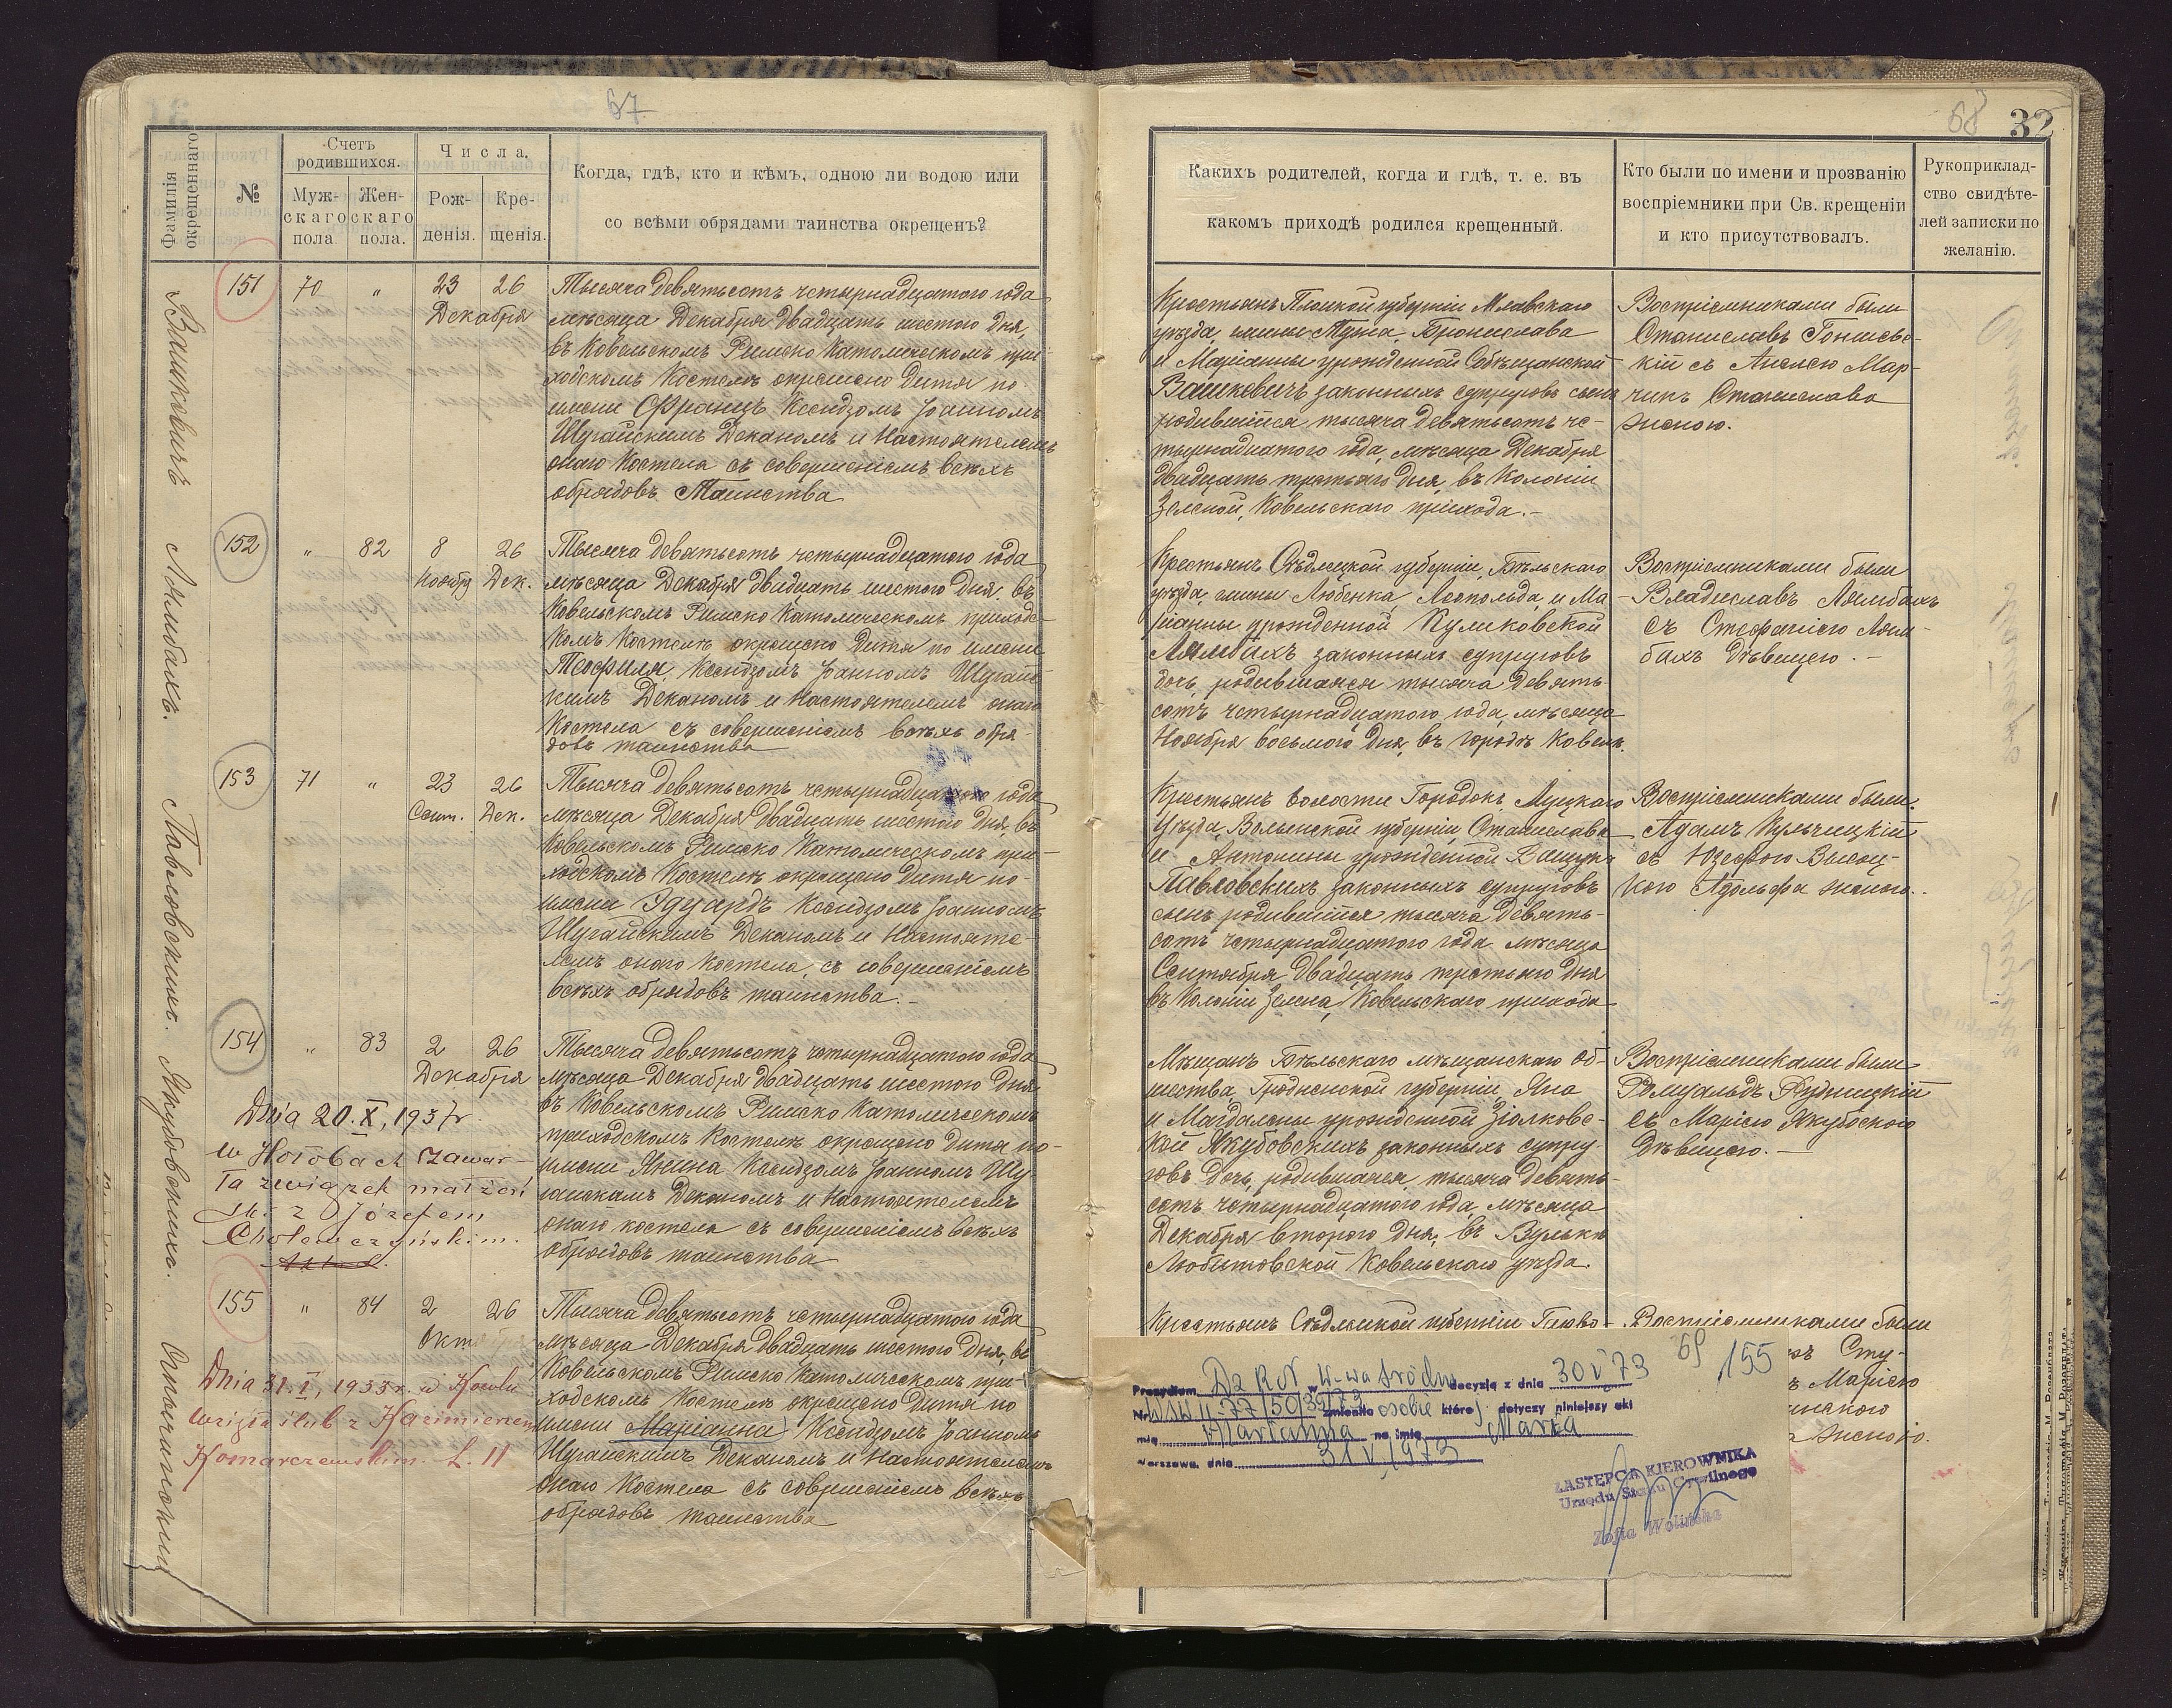 67
Фамилія окрещеннаго
№
Счетъ родившихся.
Муж-
скаго
пола.
Жен-
скаго
пола.
Числа.
Рож-
денія.
Кре-
щенія.
Когда, гдѣ, кто и кѣмъ, одною ли водою или
со всѣми обрядами таинства окрещенъ?
Вашкевичъ
151
70
"
23 26
Декабря
Тысяча девятьсотъ четырнадцатого года
мѣсяца Декабря двадцать шестого дня,
въ Ковельскомъ Римско Католическомъ при-
ходскомъ Костелѣ окрещено дитя по
имени Францъ Ксендзомъ Іоанномъ
Шугайскимъ Деканомъ и Настоятелемъ
онаго Костела съ совершеніемъ всѣхъ
обрядовъ Таинства
Лямбахъ.
152
"
82
8 26
Ноября Дек.
Тысяча девятьсотъ четырнадцатого года
мѣсяца Декабря двадцать шестого дня, въ
Ковельскомъ Римско Католическомъ приходс-
комъ Костелѣ окрещено дитя по имени
Теофиля, Ксендзомъ Іоанномъ Шугайс-
кимъ Деканомъ и Настоятелемъ онаго
Костела съ совершеніемъ всѣхъ обря-
довъ таинства
Павловскихъ.
153
71
"
23 26
Сент. Дек.
Тысяча девятьсотъ четырнадцатого года
мѣсяца Декабря двадцать шестого дня, въ
Ковельскомъ Римско Католическомъ при-
ходскомъ Костелѣ окрещено дитя по
имени Эдуардъ Ксендзомъ Іоанномъ
Шугайскимъ Деканомъ и Настояте-
лемъ онаго Костела, съ совершеніемъ
всѣхъ обрядовъ таинства.-
Якубовскихъ.
154
"
83
2 26
Декабря
Тысяча девятьсотъ четырнадцатого года
мѣсяца Декабря двадцать шестого дня
въ Ковельскомъ Римско Католическомъ
приходскомъ Костелѣ окрещено дитя по
имени Янина Ксендзомъ Іоанномъ Шу-
гайскимъ Деканомъ и Настоятелемъ
онаго костела съ совершеніемъ всѣхъ
обрядовъ таинства
Dnia 20.X.1937r.
w Hołobach zawar-
ła związek małżeń
ski z Józefem
Cholewczyńskim.
155
"
84
2 26
Октября
Тысяча девятьсотъ четырнадцатого года
мѣсяца Декабря двадцать шестого дня, въ
Ковельскомъ Римско Католическомъ при-
ходскомъ Костелѣ окрещено дитя по
имени Маріанна Ксендзомъ Іоанномъ
Шугайскимъ Деканомъ и Настоятелемъ
онаго Костела съ совершеніемъ всѣхъ
обрядовъ таинства
Dnia 31.I.1933r. w Kowlu
wzięła ślub z Kazimierzem
Komarczewskim. L. 11
68
32
Какихъ родителей, когда и гдѣ, т. е. въ
какомъ приходѣ родился крещенный.
Кто были по имени и прозванію
воспріемники при Св. крещеніи
и кто присутствовалъ.
Рукоприклад-
ство свидѣте-
лей записки по
желанію.
Крестьянъ Плоцкой губерніи Млавскаго
уѣзда, гмины Тужа, Бронислава
и Маріанны урожденной Собѣщанской
Вашкевичъ законныхъ супруговъ сынъ
родившійся тысяча девятьсотъ че-
тырнадцатого года, мѣсяца Декабря
двадцать третьяго дня, въ Колоніи
Зеленой, Ковельскаго прихода.-
Воспріемниками были
Станиславъ Гоншев-
кій съ Анелею Мар-
чикъ Станислава
женою.
Крестьянъ Сѣдлецкой губерніи, Бѣльскаго
уѣзда, гмины Любенка, Леопольда и Ма-
ріанны урожденной Куликовской
Лямбахъ законныхъ супруговъ
дочь, родившаяся тысяча девять-
сотъ четырнадцатого года, мѣсяца
Ноября восьмого дня, въ городѣ Ковелѣ.
Воспріемниками были
Владиславъ Лямбахъ
съ Стефаніею Лям-
бахъ дѣвицею.-
Крестьянъ волости Городокъ, Луцкаго
Уѣзда, Волынской губерніи, Станислава
и Антонины урожденной
Павловскихъ законныхъ супруговъ
сынъ родившійся тысяча девять-
сотъ четырнадцатого года, мѣсяца
Сентября двадцать третьяго дня
въ Колоніи Зелена, Ковельскаго прихода
Воспріемниками были
Адамъ Кульчицкій
съ Юзефою Высоц-
кою Адольфа женою.
Мѣщанъ Бѣльскаго мѣщанскаго об-
щества, Гродненской губерніи, Яна
и Магдалены урожденной Зіолковс-
кой Якубовскихъ законныхъ супру-
говъ дочь, родившаяся, тысяча девять-
сотъ четырнадцатого года, мѣсяца
Декабря второго дня, въ Вулькѣ
Любитовской Ковельскаго уѣзда.
Воспріемниками были
Ромуальдъ Рудницкій
съ Маріею Якубовскою
дѣвицею.-
Крестьянъ Сѣдлецкой губерніи
Воспріемниками были
Сту-
Маріею
женою.
69 155
Prezydium Dz R.N w W-wa Śródm decyzją z dnia 30 V 73
Nr WSW II-77/50/35/73 zmieniło osobie której dotyczy niniejszy akt
imię Marianna na imię Maria
Warszawa, dnia 31 V 1973
ZASTĘPCA KIEROWNIKA
Urzędu Stanu Cywilnego
Zofia Wolińska